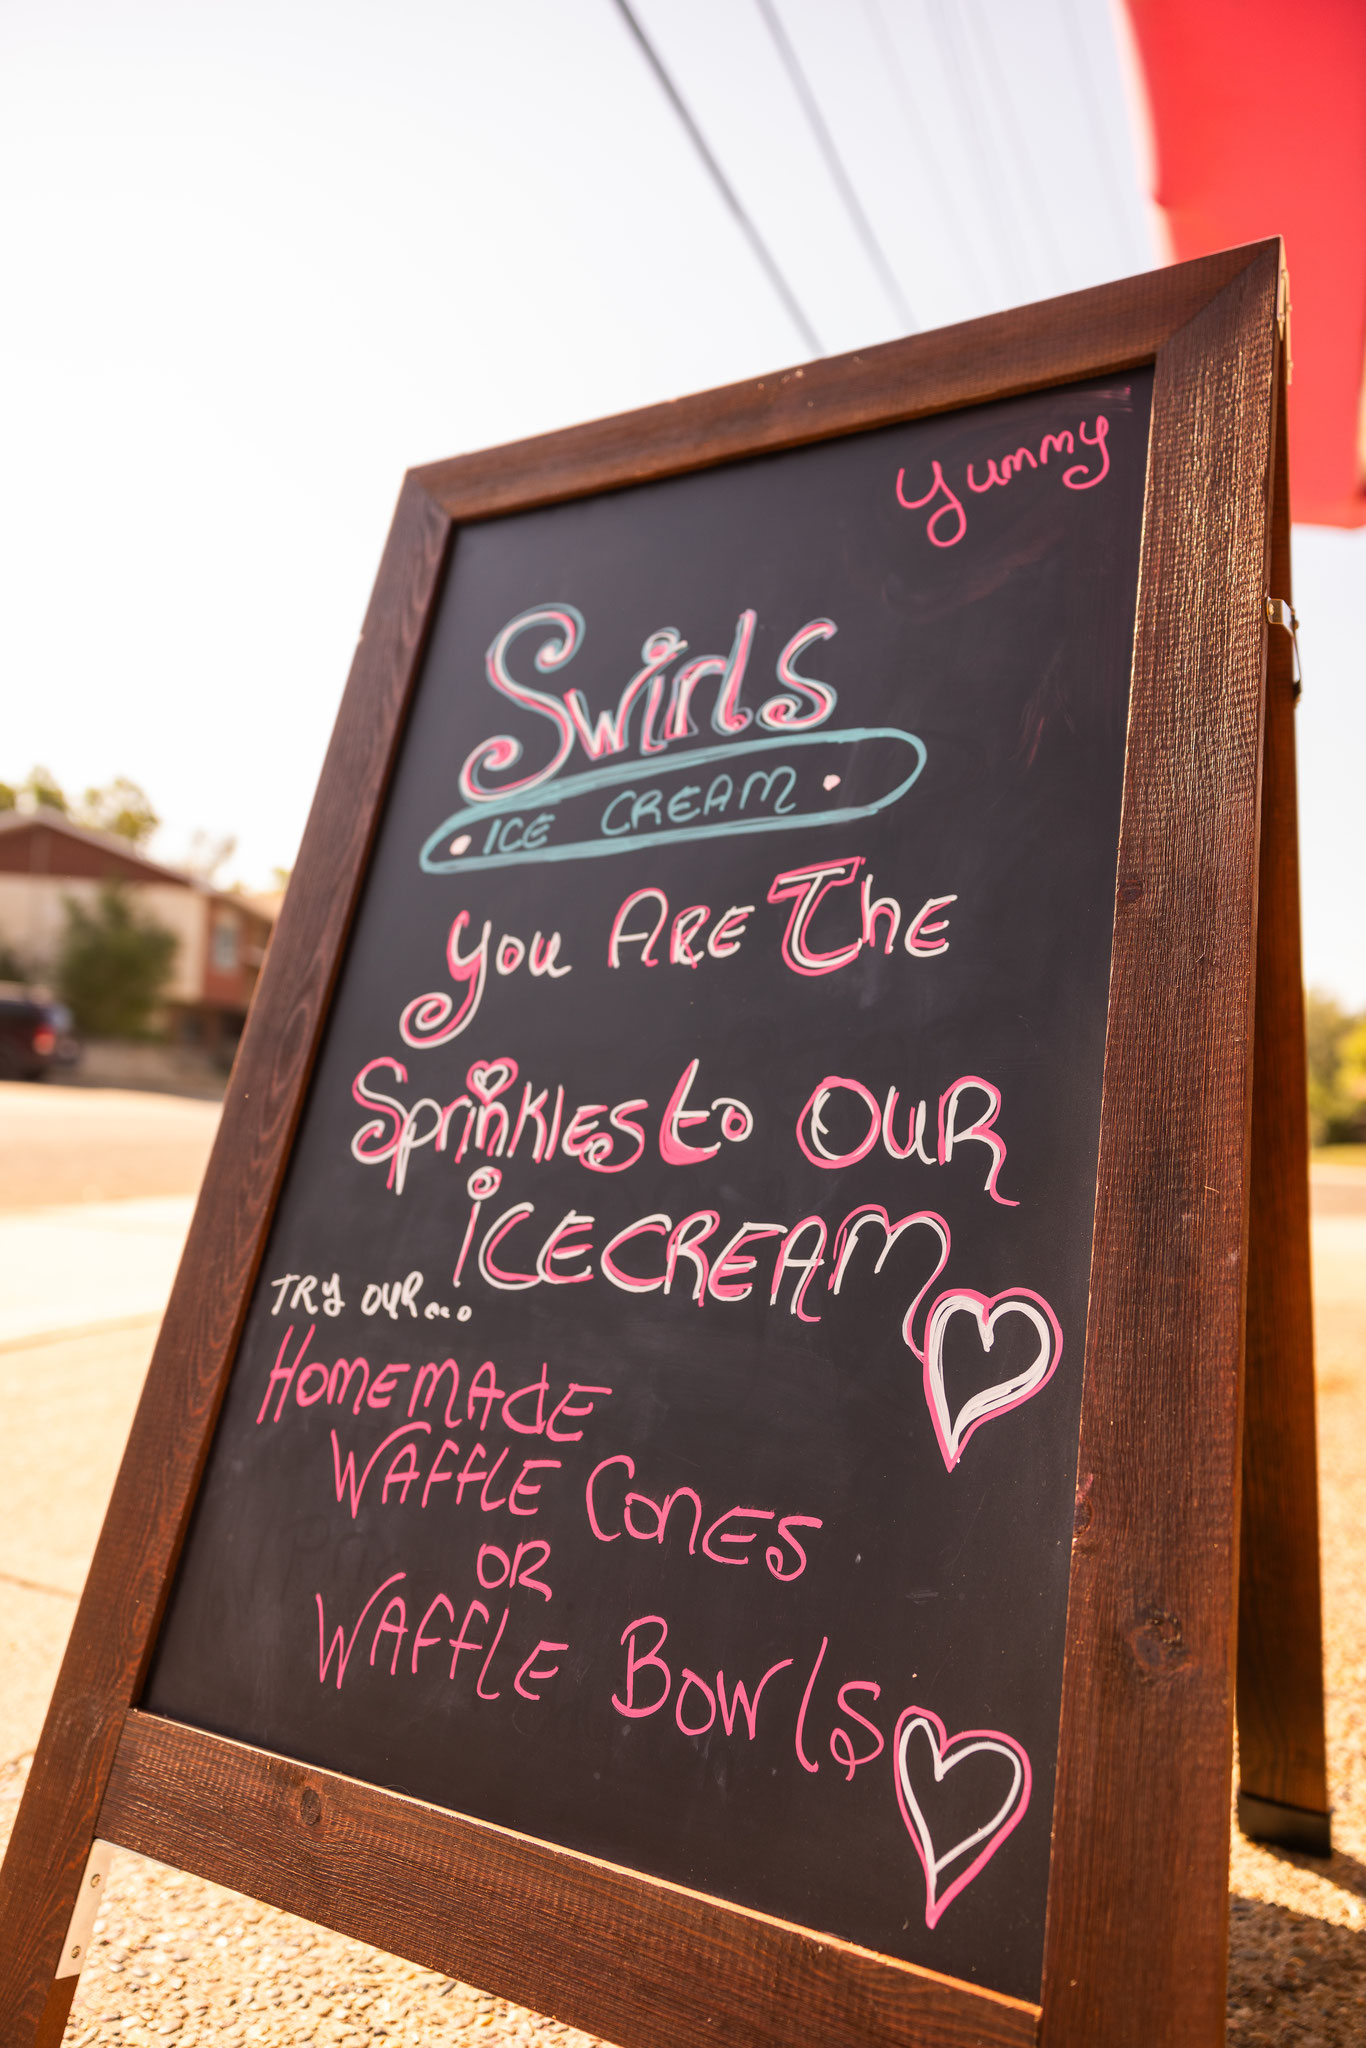 Yummy
Swirls
ICE CREAM
You ARE The
Sprinkles to OUR
iCECREAM
TRY OUR...
HOMEMAdE
WAFFLE CONES
OR
WAFFLE BOWLS